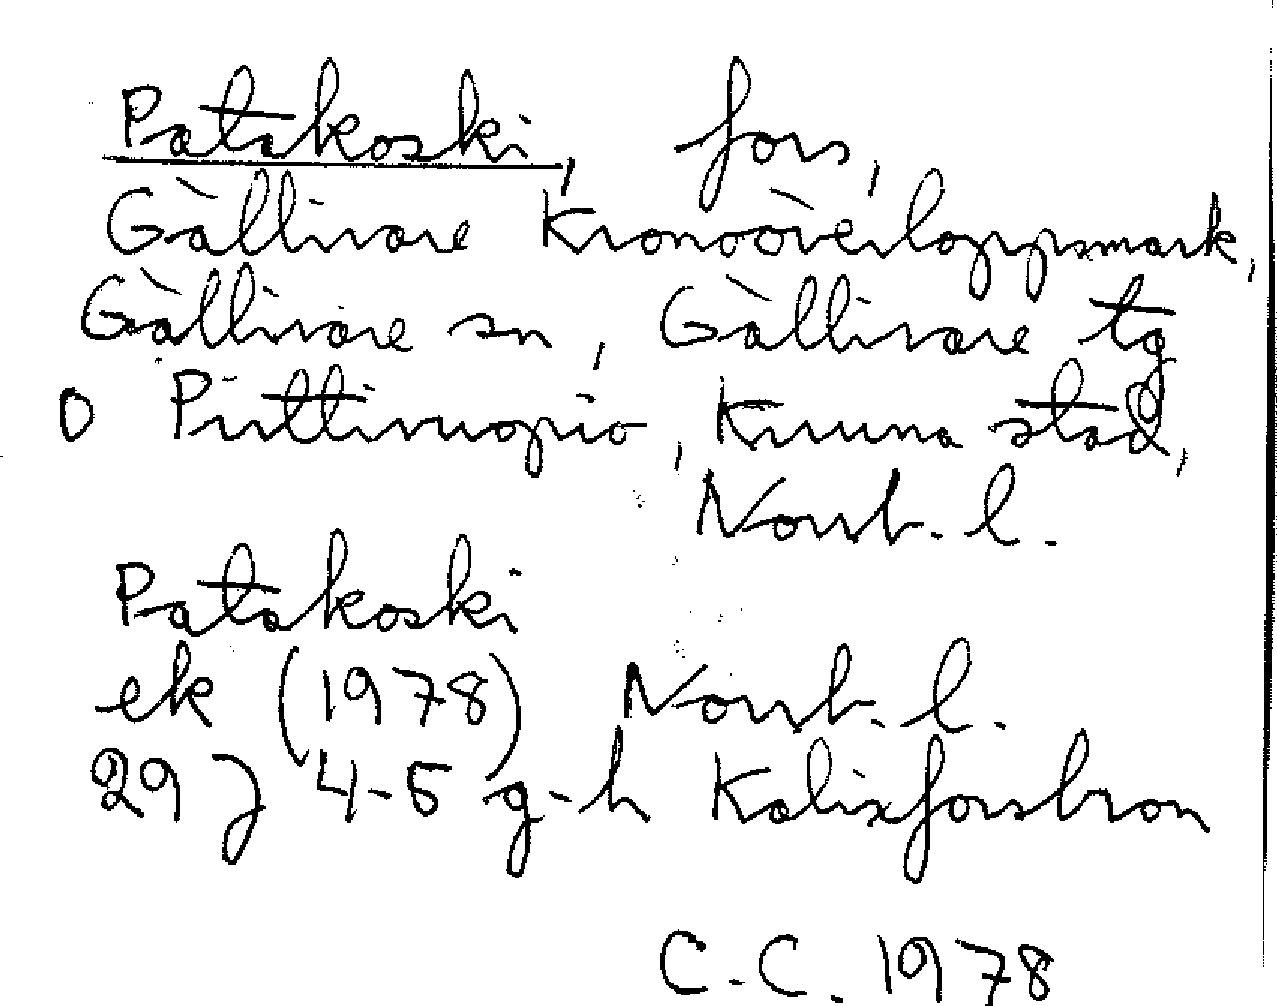 Patakoski, fors,
Gällivare Kronoöverloppsmark,
Gällivare sn, Gällivare tg
o Piirttivuopio, Kiruna stad,
Norrb. l.
Patakoski
ek (1978) Norrb. l.
29 J 4-5 g-h Kalixforsbron
C.C. 1978